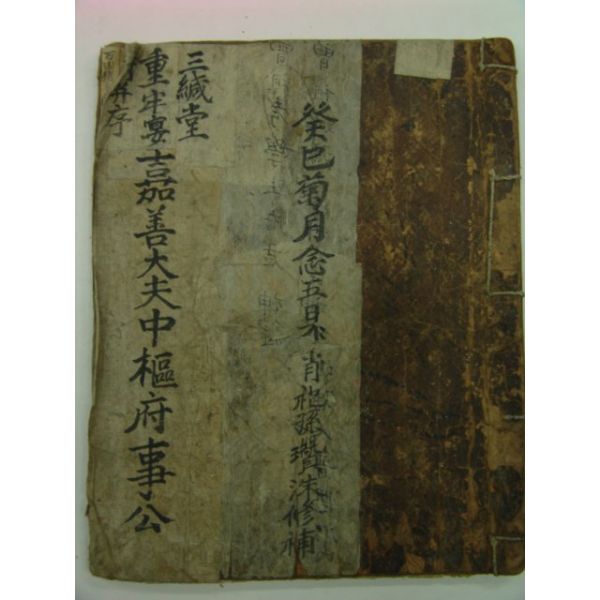 癸巳菊月念五日不肖祀孫瓚洙修補
三緘堂
重牢宴嘉善大夫中樞府事公
詩并序